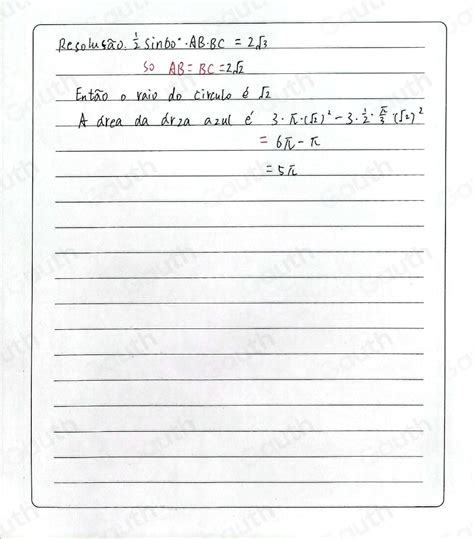 Resolução. 1/2 sin60°·AB·BC = 2√3
so AB = BC = 2√2
Então o raio do circulo é √2
A área da árza azul é 3·π·(√2)² − 3·1/2·π/3·(√2)²
= 6π − π
= 5π